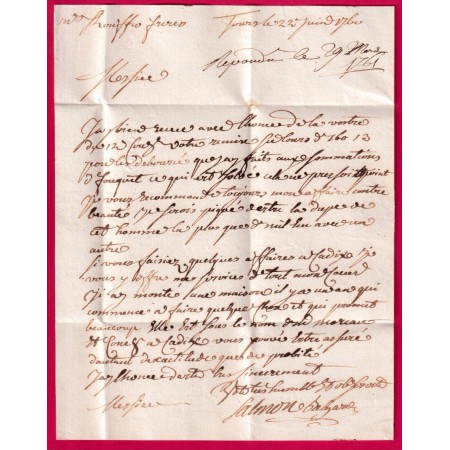 Mrs Rouffio freres Tours le 22 juin 1760
Repondu le 29 Mars 1761
Messieu
J'ay bien receu avec lhonneur de la vostre
du 12 votre remise de Lours d 160 13
pour les debource que j'ay faits aux sommations
d fouquet ce qui est soldé
je vous recommande toujours mon affaire contre
beaute je serois piqué destre la dupe de
cet homme la plus que d nul lieu avec un
autre
si vous faisiez quelques affaires a Cadix je
vous y offre mes services d tout mon coeur
J'ai monté une maison il y a un an qui
commence a faire quelque chose et qui promet
beaucoup elle est sous le nom de md moreau
et Cones a Cadix vous pouvez estre assuré
dautant dexactitude que de probité
J'ay lhonneur destre tres sincerement
Messieu
Votre tres humble et obt servit
Salmon